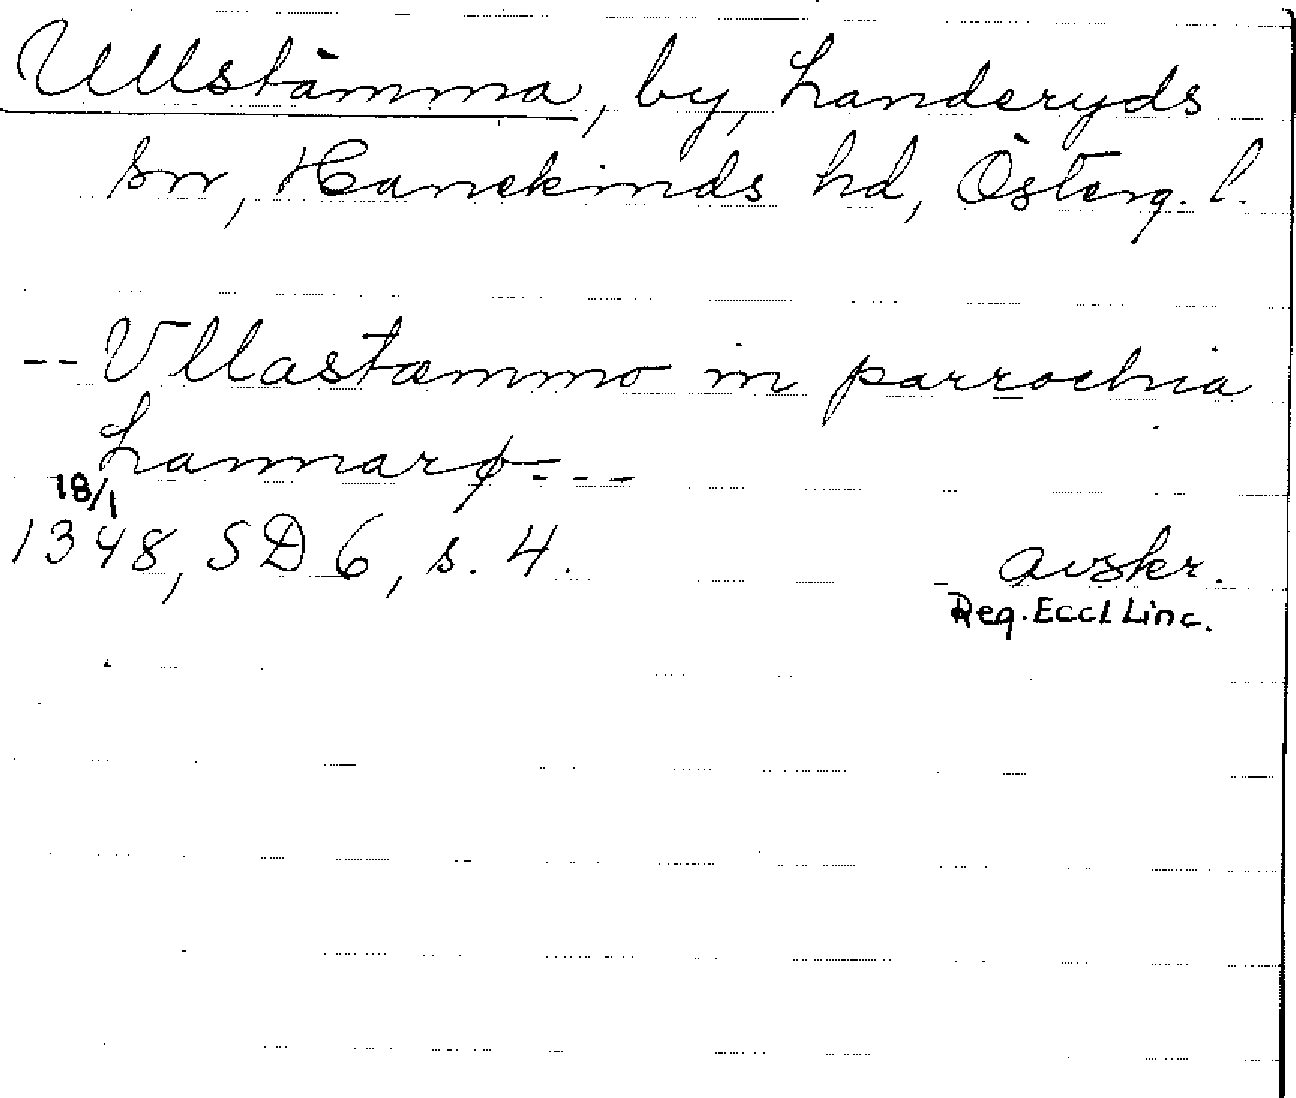 Ullstämma, by, Landeryds
sn, Hanekinds hd, Österg. l.
-- Vllastæmmo in parrochia
Lannarø ---
18/1
1348, SD 6, s. 4.
avskr.
Reg. Eccl Linc.